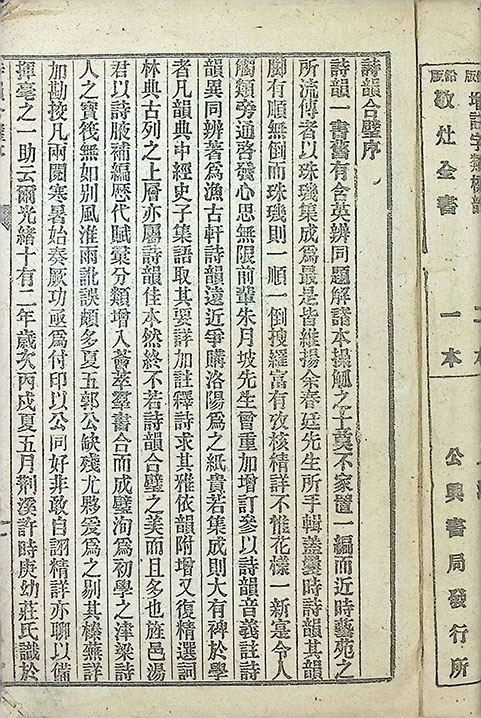 詩韻合璧序
詩韻一書舊有含英辨同題解諸本操觚之士莫不家置一編而近時藝苑之
所流傳者以珠璣集成爲最是皆維揚余春廷先生所手輯蓋曩時詩韻其韻
脚有順無倒而珠璣則一順一倒搜羅富有攷核精詳不惟花樣一新寔令人
觸類旁通啓發心思無限前輩朱月坡先生曾重加增訂參以詩韻音義註詩
韻異同辨著爲漁古軒詩韻遠近爭購洛陽爲之紙貴若集成則大有裨於學
者凡韻典中經史子集語取其要詳加註釋詩求其雅依韻附增又復精選詞
林典古列之上層亦屬詩韻佳本然終不若詩韻合璧之美而且多也旌邑湯
君以詩腋補編歷代賦彙分類增入薈萃羣書合而成璧洵爲初學之津梁詩
人之寶筏無如別風淮雨訛誤頗多夏五郭公缺殘尤夥爰爲之剔其榛蕪詳
加勘挍凡兩閱寒暑始奏厥功亟爲付印以公同好非敢自詡精詳亦聊以備
揮毫之一助云爾光緒十有二年歲次丙戌夏五月荆溪許時庚幼莊氏識於
鉛版
敬灶全書
一本
公興書局發行所